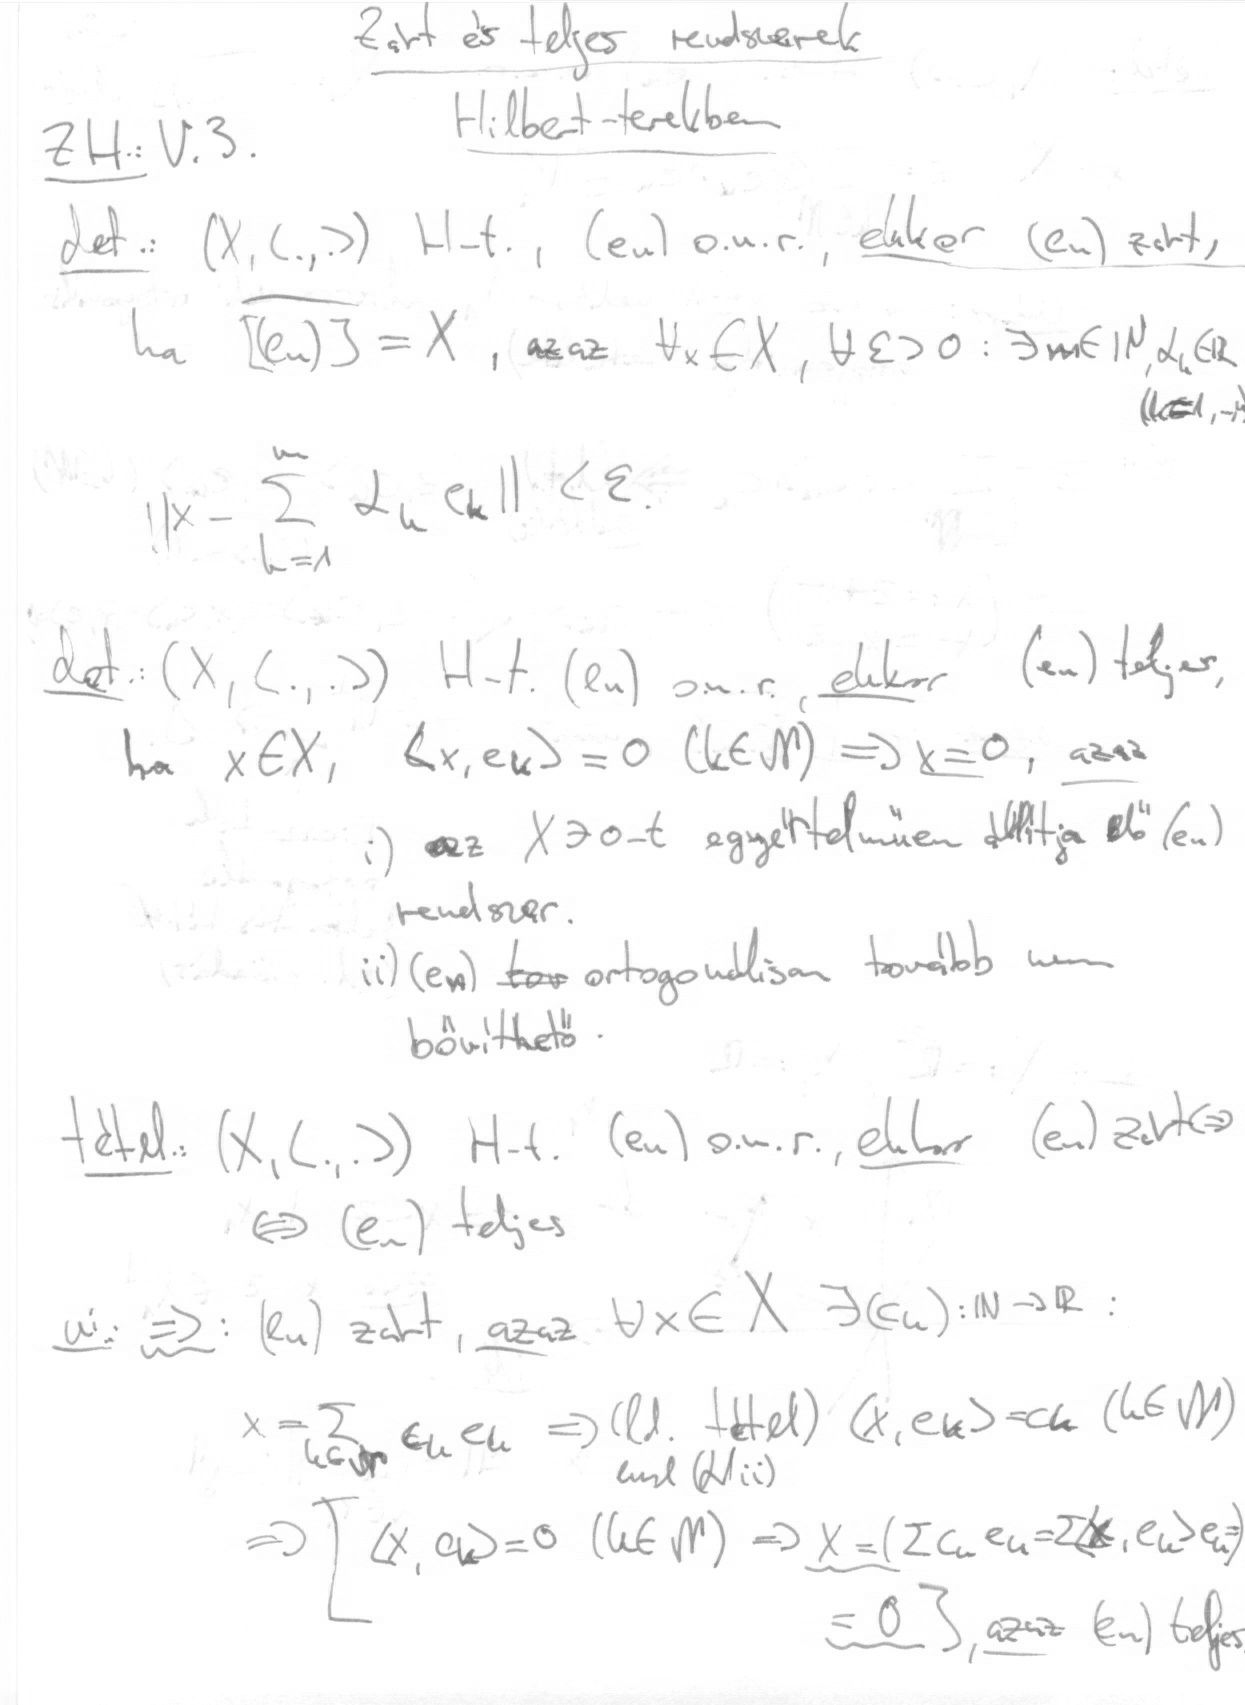 Zárt és teljes rendszerek
Hilbert-terekben
ZH.: V.3.
def.: (X, <.,.>) H-t., (en) o.n.r., ekkor (en) zárt,
ha [(en)] = X, azaz ∀x∈X, ∀ε>0: ∃m∈ℕ, αk∈ℝ
(k=1,..,n)
||x - Σ αk ek|| < ε.
m
k=1
def.: (X, <.,.>) H-t. (en) o.n.r., ekkor (en) teljes,
ha x∈X, <x, ek> = 0 (k∈ℕ) ⇒ x=0, azaz
i) az X∋0-t egyértelműen állítja elő (en)
rendszer.
ii) (en) ortogonálisan tovább nem
bővíthető.
tétel.: (X, <.,.>) H-t. (en) o.n.r., ekkor (en) zárt ⇔
⇔ (en) teljes
⇒: (en) zárt, azaz ∀x∈X ∃(cn): ℕ→ℝ :
x = Σ ck ek ⇒ (ld. tétel) <x, ek> = ck (k∈ℕ)
k∈ℕ
⇒ [<x, ek> = 0 (k∈ℕ) ⇒ x = (Σ cn en = Σ<x, en> en =)
= 0], azaz (en) teljes